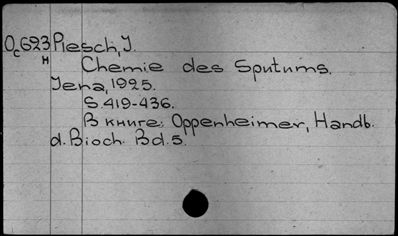 Oc623 Plesch, J.
н
Chemie des Sputums.
Jena, 1925.
S. 419-436.
В книге: Oppenheimer, Handb.
d. Bioch. Bd. 5.